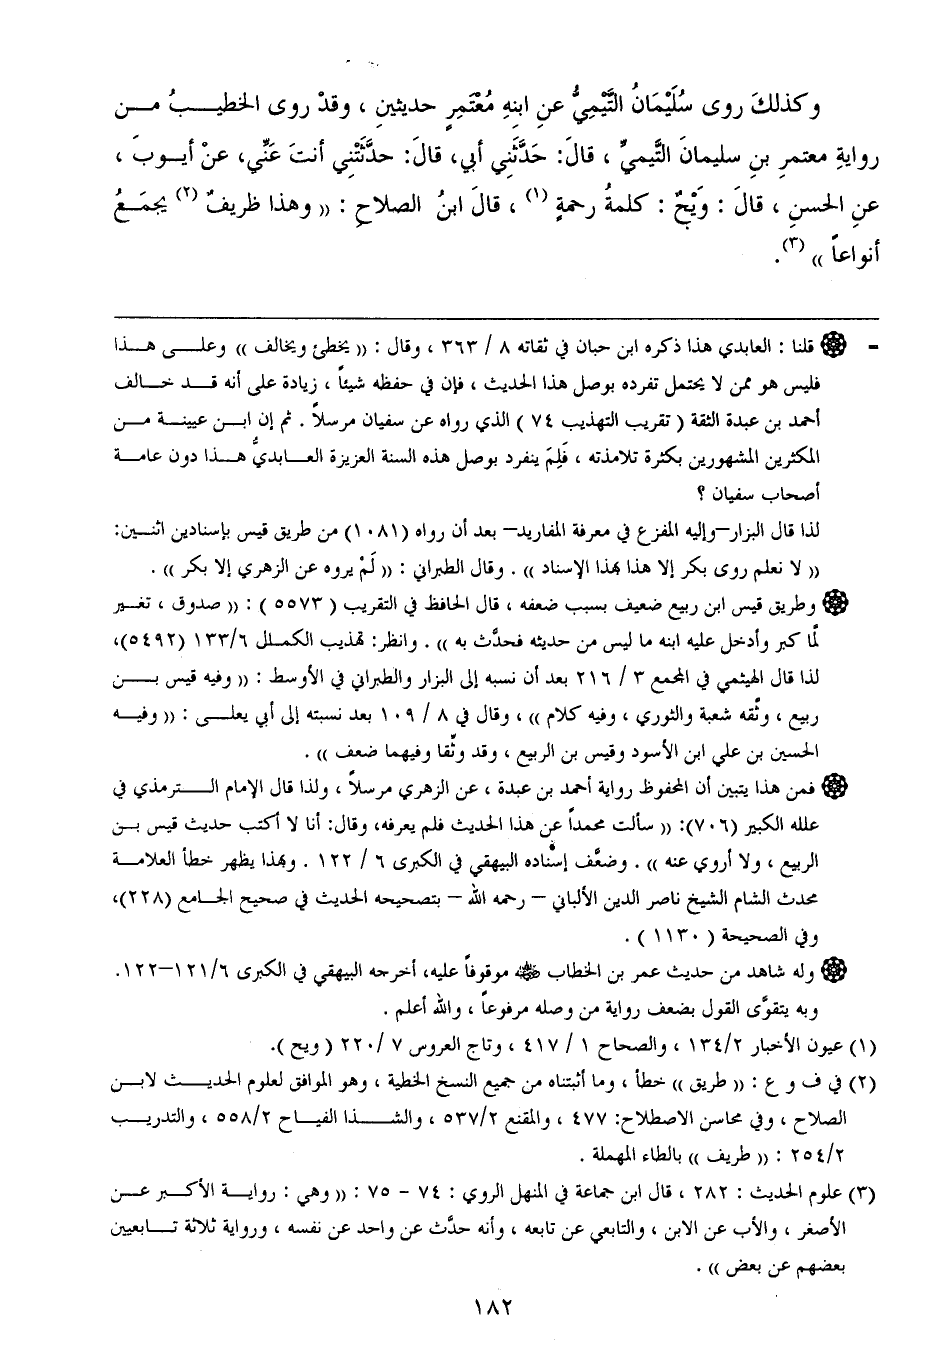 وكذلكَ روى سُلَيْمَانُ التَّيْمِيُّ عنِ ابنِهِ مُعْتَمِرٍ حديثينِ ، وقدْ روى الخطيبُ من
روايةِ معتمرِ بنِ سليمانَ التَّيميِّ ، قالَ: حَدَّثَني أبي، قالَ: حدَّثَتْني أنتَ عَنِّي، عنْ أيوبَ ،
عنِ الحسنِ ، قالَ : وَيْحٌ : كلمةُ رحمةٍ (١) ، قالَ ابنُ الصلاحِ : (( وهذا ظريفٌ (٢) يجمَعُ
أنواعاً )) (٣).
- قلنا : العابدي هذا ذكره ابن حبان في ثقاته ٨ / ٣٦٣ ، وقال : (( يخطئ ويخالف )) وعلى هذا
فليس هو ممن لا يحتمل تفرده بوصل هذا الحديث ، فإن في حفظه شيئاً ، زيادة على أنه قد خالف
أحمد بن عبدة الثقة ( تقريب التهذيب ٧٤ ) الذي رواه عن سفيان مرسلاً . ثم إن ابن عيينة من
المكثرين المشهورين بكثرة تلامذته ، فَلِمَ ينفرد بوصل هذه السنة العزيزة العابديُّ هذا دون عامة
أصحاب سفيان ؟
لذا قال البزار–وإليه المفزع في معرفة المفاريد– بعد أن رواه (١٠٨١) من طريق قيس بإسنادين اثنين:
(( لا نعلم روى بكر إلا هذا بهذا الإسناد )) . وقال الطبراني : (( لَمْ يروه عن الزهري إلا بكر )) .
وطريق قيس ابن ربيع ضعيف بسبب ضعفه ، قال الحافظ في التقريب ( ٥٥٧٣ ) : (( صدوق ، تغير
لمّا كبر وأدخل عليه ابنه ما ليس من حديثه فحدَّث به )) . وانظر: تهذيب الكمال ١٣٣/٦ (٥٤٩٢)،
لذا قال الهيثمي في المجمع ٣ / ٢١٦ بعد أن نسبه إلى البزار والطبراني في الأوسط : (( وفيه قيس بن
ربيع ، وثَّقه شعبة والثوري ، وفيه كلام )) ، وقال في ٨ / ١٠٩ بعد نسبته إلى أبي يعلى : (( وفيه
الحسين بن علي ابن الأسود وقيس بن الربيع ، وقد وثِّقا وفيهما ضعف )) .
فمن هذا يتبين أن المحفوظ رواية أحمد بن عبدة ، عن الزهري مرسلاً ، ولذا قال الإمام الترمذي في
علله الكبير (٧٠٦): (( سألت محمداً عن هذا الحديث فلم يعرفه، وقال: أنا لا أكتب حديث قيس بن
الربيع ، ولا أروي عنه )) . وضعَّف إسناده البيهقي في الكبرى ٦ / ١٢٢ . وبهذا يظهر خطأ العلامة
محدث الشام الشيخ ناصر الدين الألباني – رحمه الله – بتصحيحه الحديث في صحيح الجامع (٢٢٨)،
وفي الصحيحة ( ١١٣٠ ) .
وله شاهد من حديث عمر بن الخطاب ﷺ موقوفاً عليه، أخرجه البيهقي في الكبرى ١٢١/٦–١٢٢.
وبه يتقوَّى القول بضعف رواية من وصله مرفوعاً ، والله أعلم .
(١) عيون الأخبار ١٣٤/٢ ، والصحاح ١ / ٤١٧ ، وتاج العروس ٧ /٢٢٠ ( ويح ).
(٢) في ف و ع : (( طريق )) خطأ ، وما أثبتناه من جميع النسخ الخطية ، وهو الموافق لعلوم الحديث لابن
الصلاح ، وفي محاسن الاصطلاح: ٤٧٧ ، والمقنع ٥٣٧/٢ ، والشذا الفياح ٥٥٨/٢ ، والتدريب
٢٥٤/٢ : (( طريف )) بالطاء المهملة .
(٣) علوم الحديث : ٢٨٢ ، قال ابن جماعة في المنهل الروي : ٧٤ - ٧٥ : (( وهي : رواية الأكبر عن
الأصغر ، والأب عن الابن ، والتابعي عن تابعه ، وأنه حدَّث عن واحد عن نفسه ، ورواية ثلاثة تابعيين
بعضهم عن بعض )) .
١٨٢